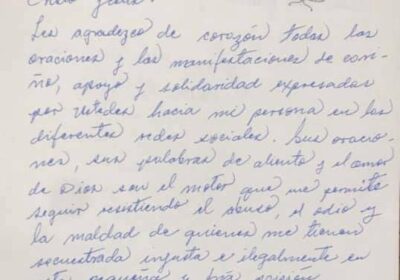 Les agradezco de corazón todas las
oraciones y las manifestaciones de cari-
ño, apoyo y solidaridad expresadas
por ustedes hacia mi persona en las
diferentes redes sociales. Sus oracio-
nes, sus palabras de aliento y el amor
de Dios son el motor que me permite
seguir resistiendo el abuso, el odio y
la maldad de quienes me tienen
secuestrada injusta e ilegalmente en